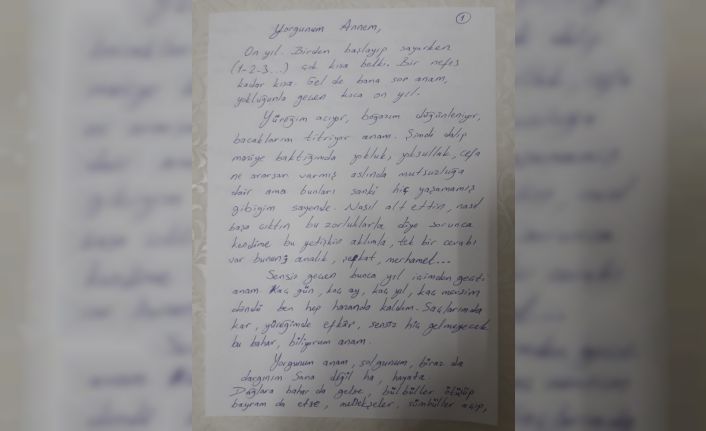 1
Yorgunum Annem,
On yıl. Birden başlayıp sayarken
(1-2-3...) çok kısa belki. Bir nefes
kadar kısa. Gel de bana sor anam,
yokluğunla geçen koca on yıl.
Yüreğim acıyor, boğazım düğümleniyor,
bacaklarım titriyor anam. Şimdi dalıp
maziye baktığımda yokluk, yoksulluk, cefa
ne ararsan varmış aslında mutsuzluğa
dair ama bunları sanki hiç yaşamamış
gibiyim sayende. Nasıl alt ettin, nasıl
başa çıktın bu zorluklarla diye sorunca
kendime bu yetişkin aklımla, tek bir cevabı
var bunun; analık, şefkat, merhamet...
Sensiz geçen bunca yıl, içimden geçti
anam. Kaç gün, kaç ay, kaç yıl, kaç mevsim
döndü ben hep hazanda kaldım. Saçlarımda
kar, yüreğimde efkâr, sensiz hiç gelmeyecek
bu bahar, biliyorum anam.
Yorgunum anam, solgunum, biraz da
dargınım Sana değil ha, hayata.
Dağlara bahar da gelse, bülbüller ötüşüp
bayram da etse, menekşeler, sümbüller açıp,